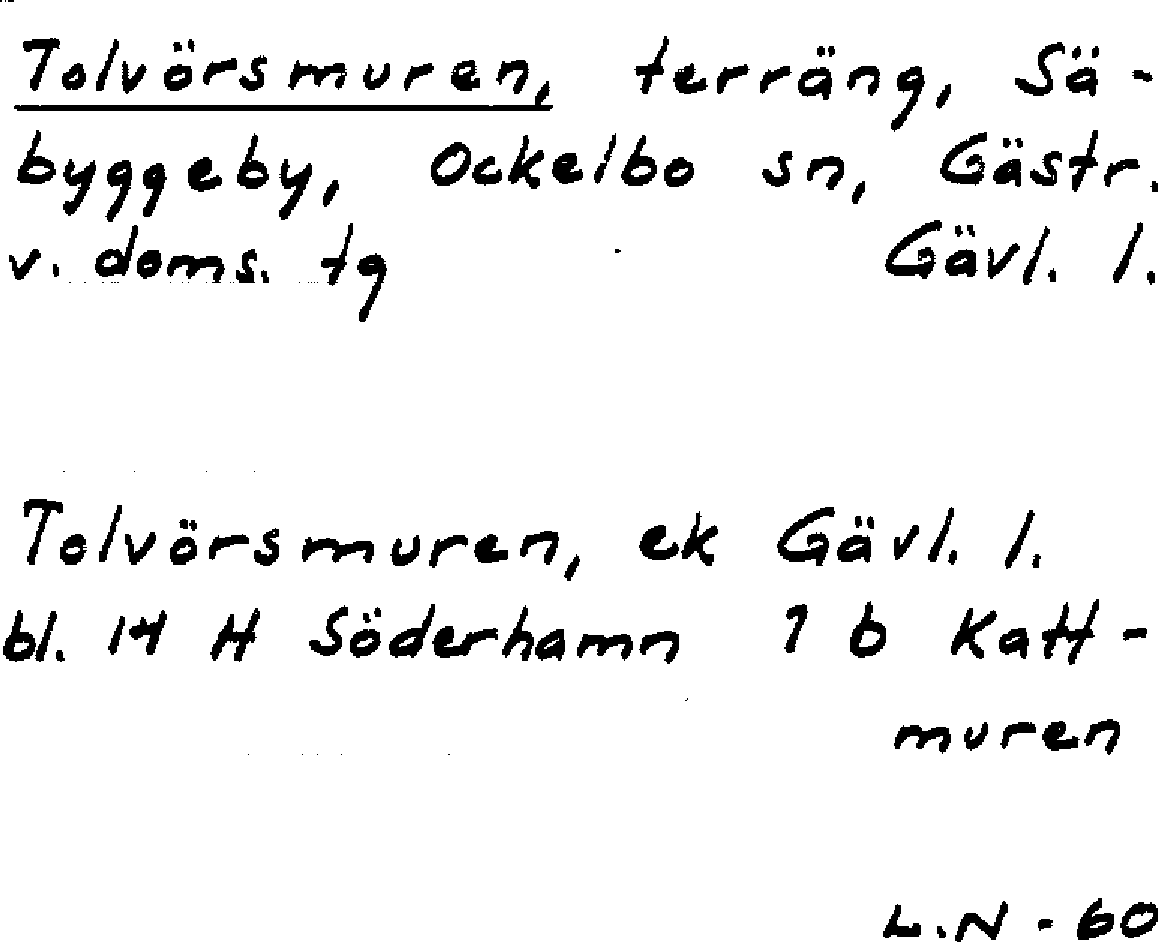 Tolvörsmuren, terräng, Sä-
byggeby, Ockelbo sn, Gästr.
v. doms. tg Gävl. l.
Tolvörsmuren, ek Gävl. l.
bl. 14 H Söderhamn 1 b Katt-
muren
L.N - 60